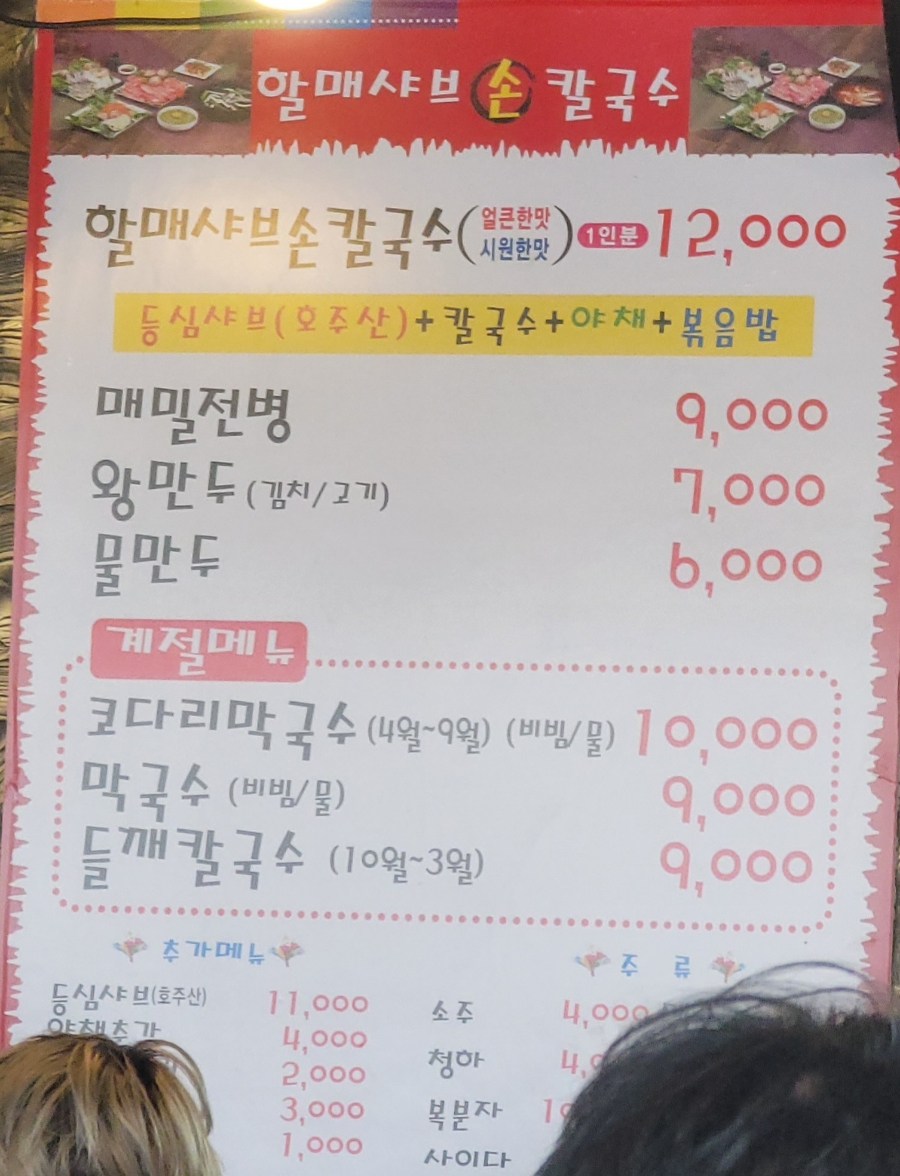 할매샤브손칼국수
할매샤브손칼국수(얼큰한맛 시원한맛) 1인분 12,000
등심샤브(호주산)+칼국수+야채+볶음밥
매밀전병 9,000
왕만두(김치/고기) 7,000
물만두 6,000
계절메뉴
코다리막국수(4월~9월) (비빔/물) 10,000
막국수 (비빔/물) 9,000
들깨칼국수 (10월~3월) 9,000
추가메뉴
등심샤브(호주산) 11,000
야채추가 4,000
2,000
3,000
1,000
주 류
소주 4,000
청하
복분자
사이다